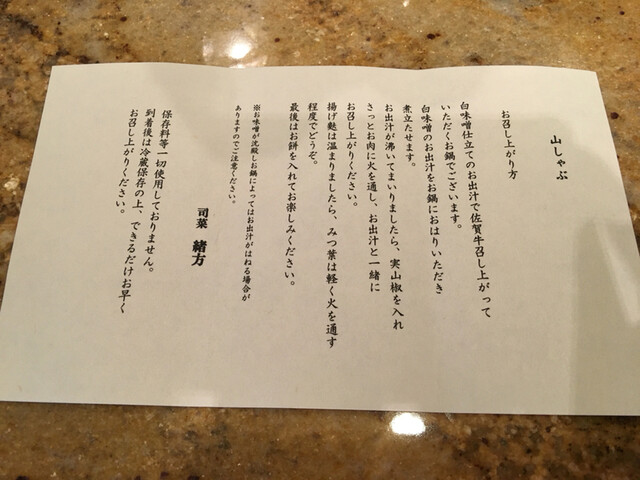 山しゃぶ
お召し上がり方
白味噌仕立てのお出汁で佐賀牛召し上がって
いただくお鍋でございます。
白味噌のお出汁をお鍋におはりいただき
煮立たせます。
お出汁が沸いてまいりましたら、実山椒を入れ
さっとお肉に火を通し、お出汁と一緒に
お召し上がりください。
揚げ麩は温まりましたら、みつ葉は軽く火を通す
程度でどうぞ。
最後はお餅を入れてお楽しみください。
※お味噌が沈殿しお鍋によってはお出汁がはねる場合が
ありますのでご注意ください。
司菜 緒方
保存料等一切使用しておりません。
到着後は冷蔵保存の上、できるだけお早く
お召し上がりください。